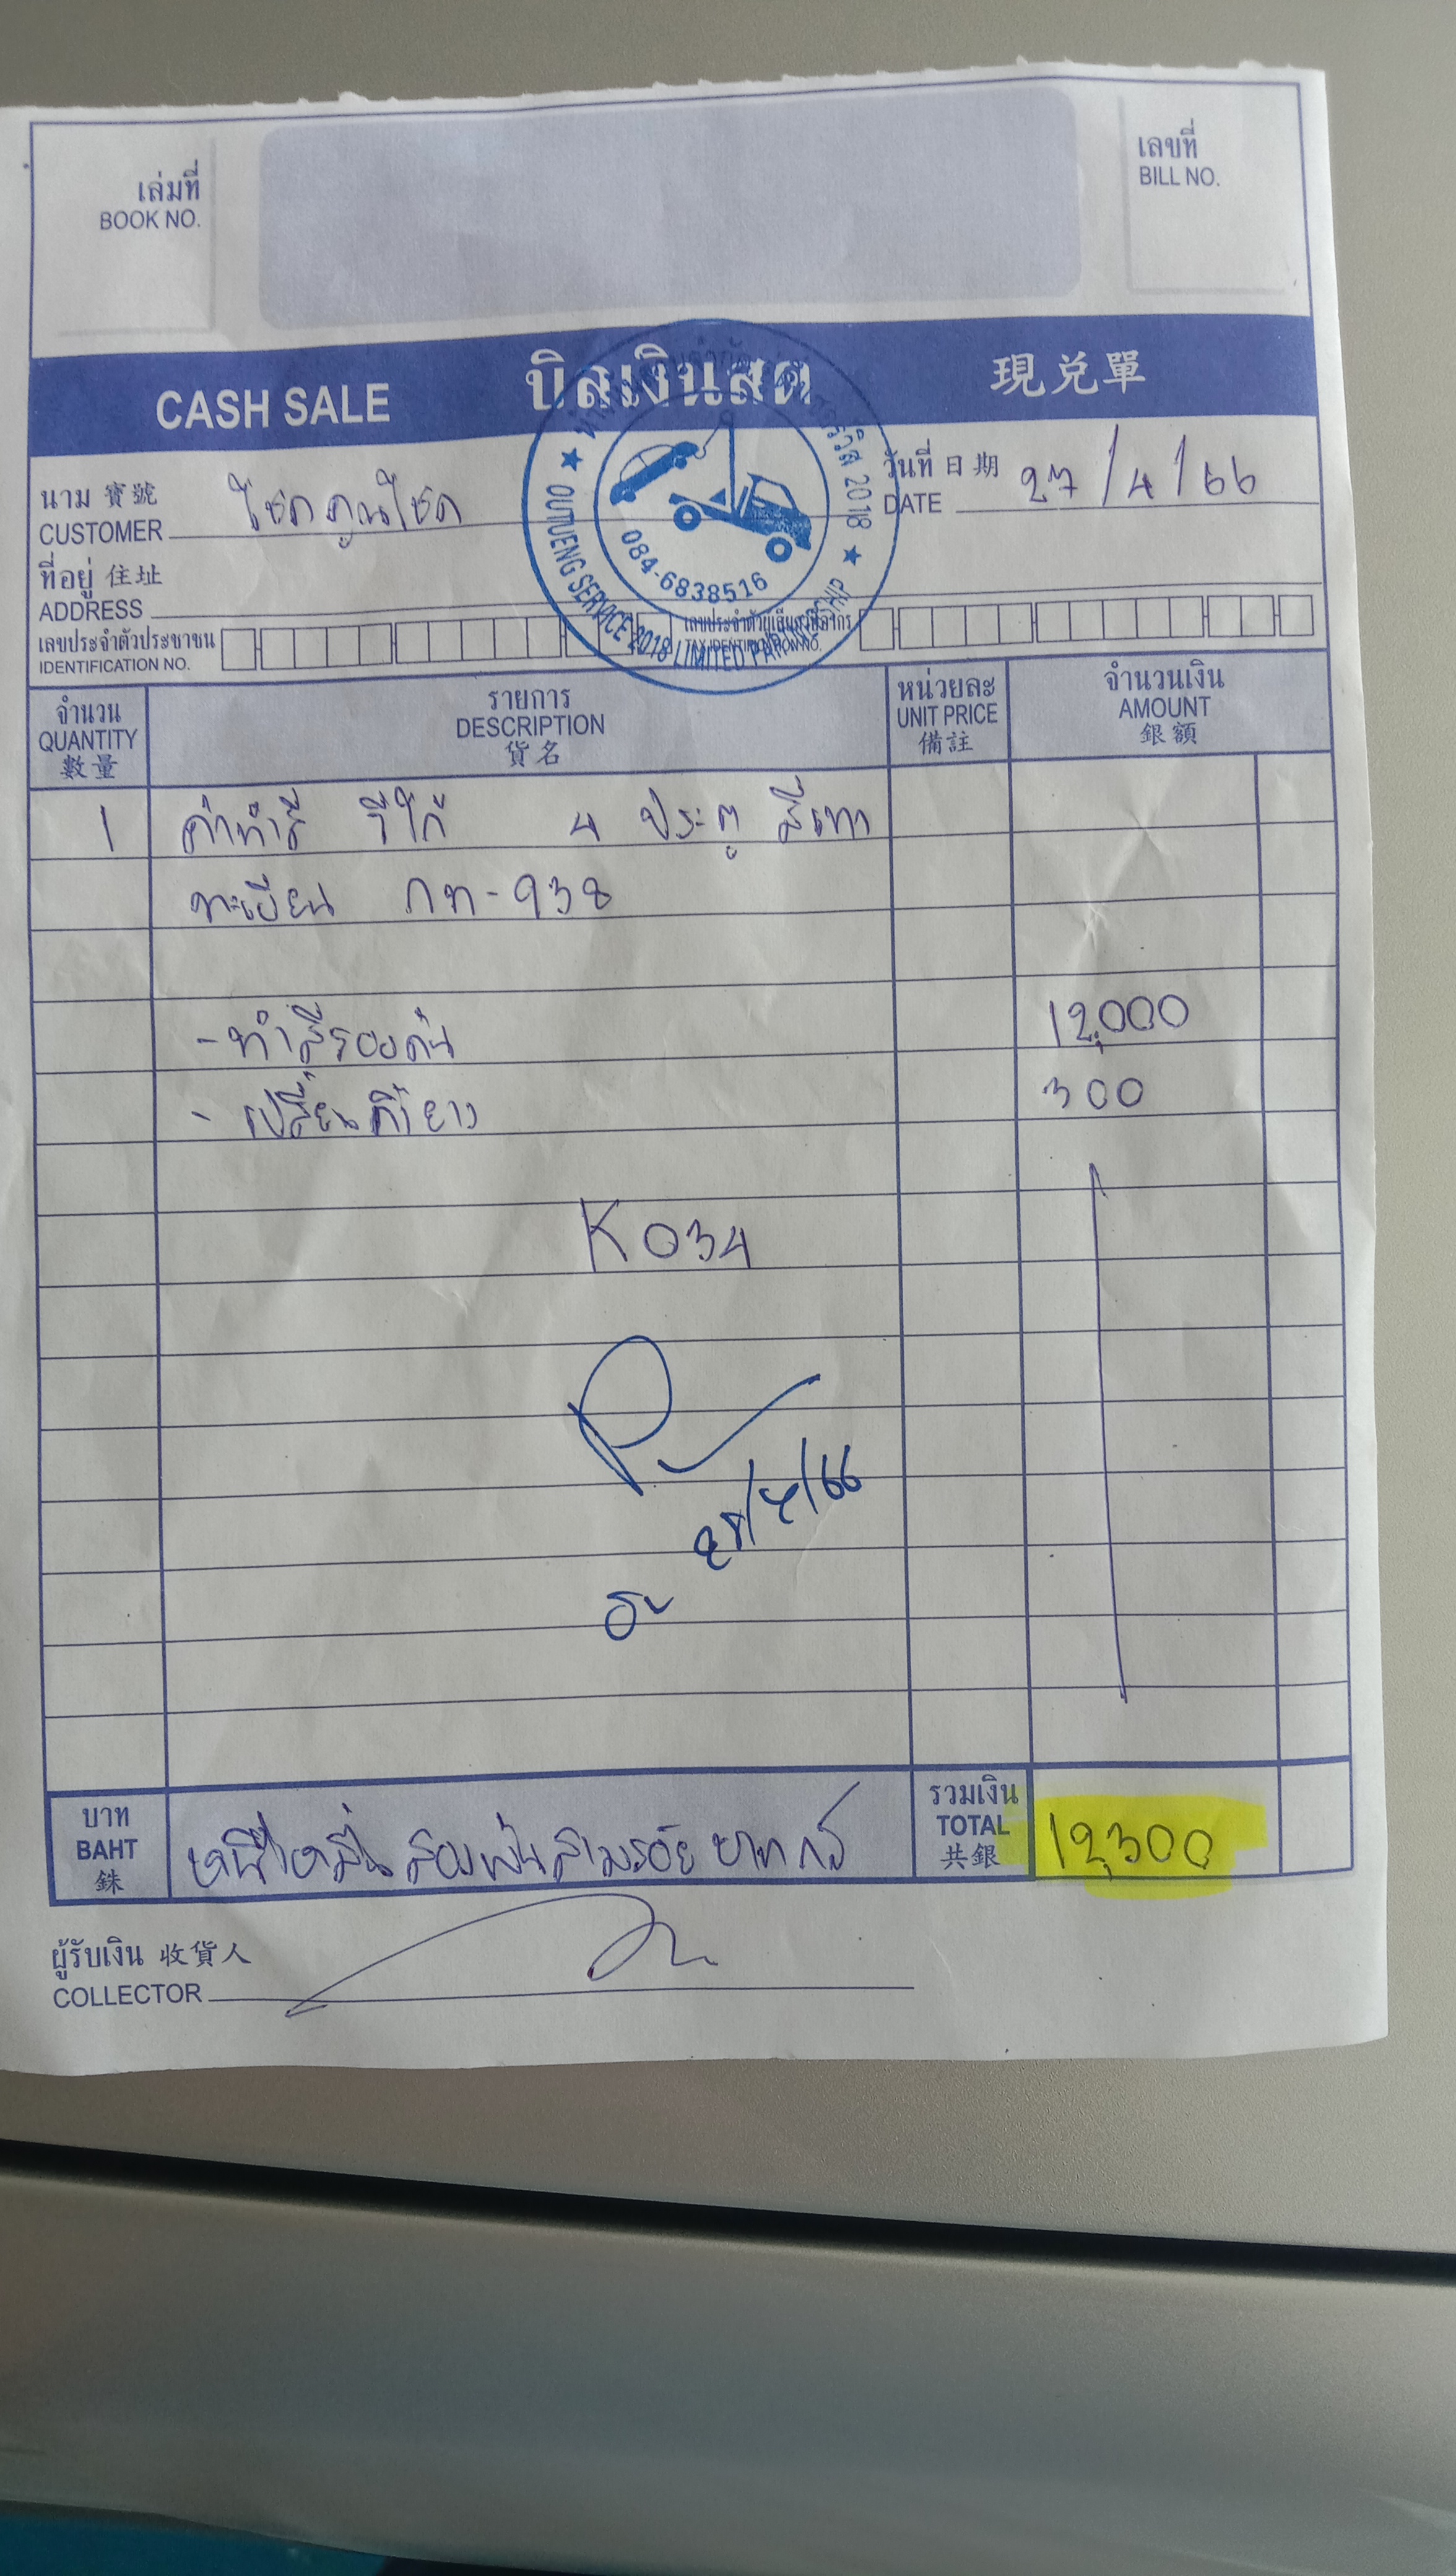 เล่มที่
BOOK NO.
เลขที่
BILL NO.
CASH SALE บิลเงินสด 現兑單
นาม 寶號
CUSTOMER โชคคูณโชค
วันที่ 日期
DATE 27/4/66
2018
OUTUENG SERVICE 2018 LIMITED PARTNERSHIP
084-6838516
ที่อยู่ 住址
ADDRESS
เลขประจำตัวประชาชน
IDENTIFICATION NO.
เลขประจำตัวผู้เสียภาษีอากร
TAX IDENTIFICATION NO.
จำนวน
QUANTITY
數量
รายการ
DESCRIPTION
貨名
หน่วยละ
UNIT PRICE
備註
จำนวนเงิน
AMOUNT
銀額
1 ค่าทำสี วีโก้ 4 ประตู สีเทา
ทะเบียน กท-938
- ทำสีรอบคัน 12,000
- เปลี่ยนคิ้วยาง 300
K034
28/4/66
บาท
BAHT
銖
หนึ่งหมื่นสองพันสามร้อยบาทถ้วน
รวมเงิน
TOTAL
共銀
12,300
ผู้รับเงิน 收貨人
COLLECTOR